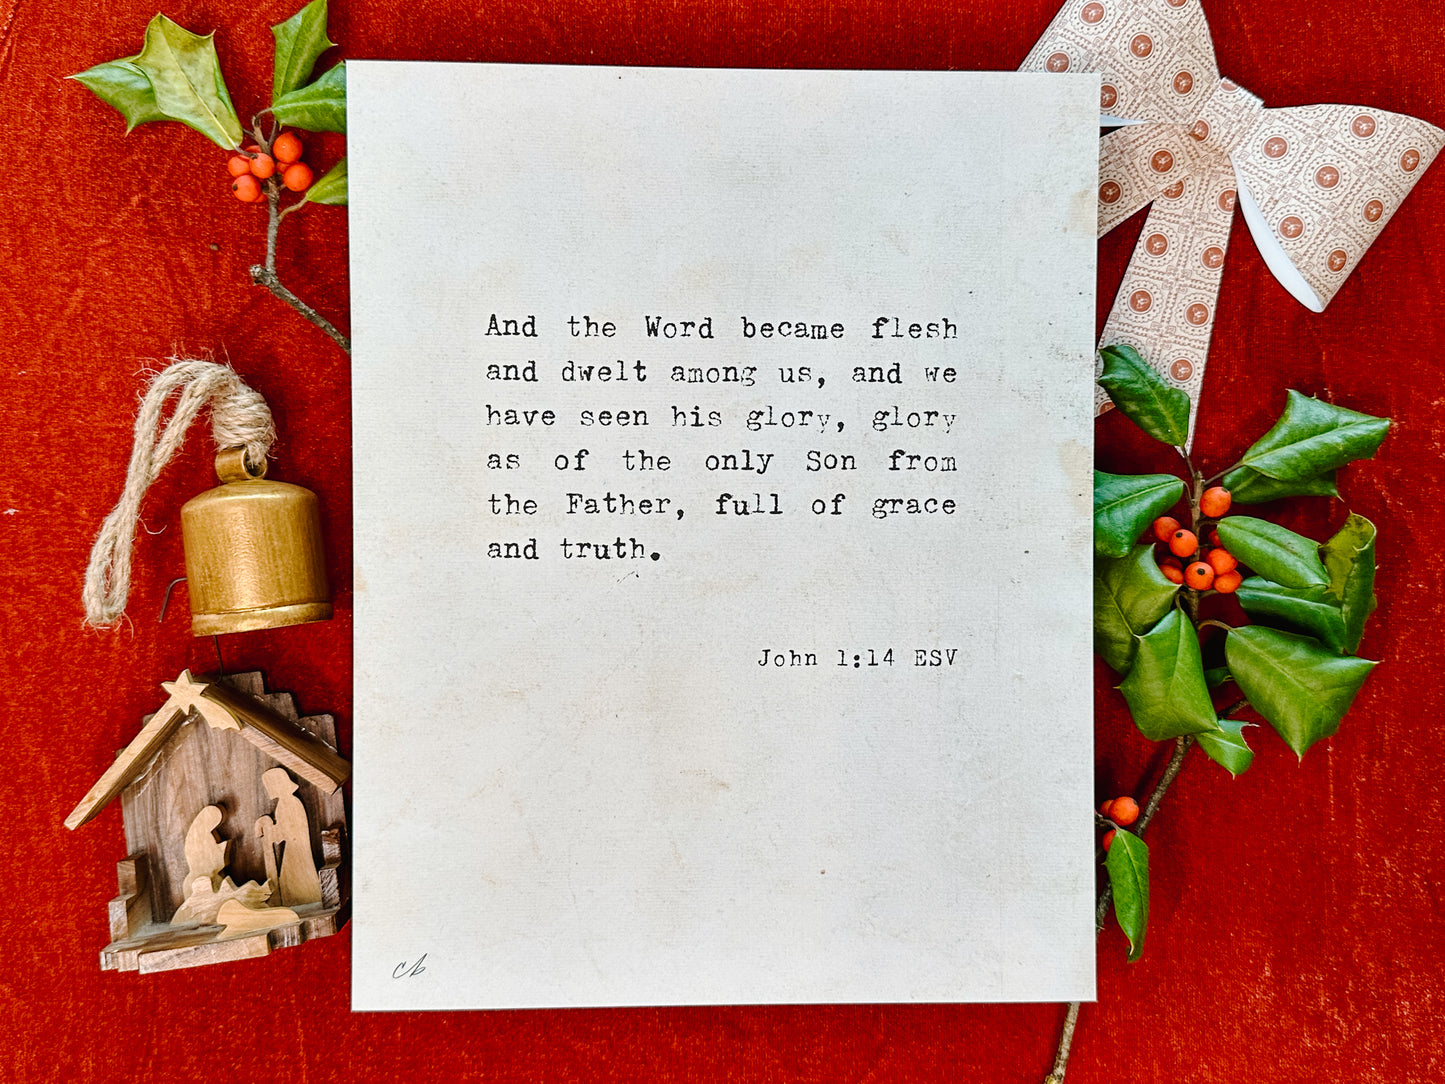 And the Word became flesh
and dwelt among us, and we
have seen his glory, glory
as of the only Son from
the Father, full of grace
and truth.
John 1:14 ESV
cb